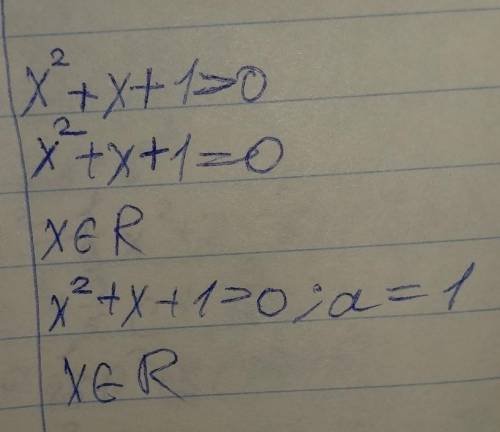 x²+x+1>0
x²+x+1=0
x∈R
x²+x+1>0; a=1
x∈R